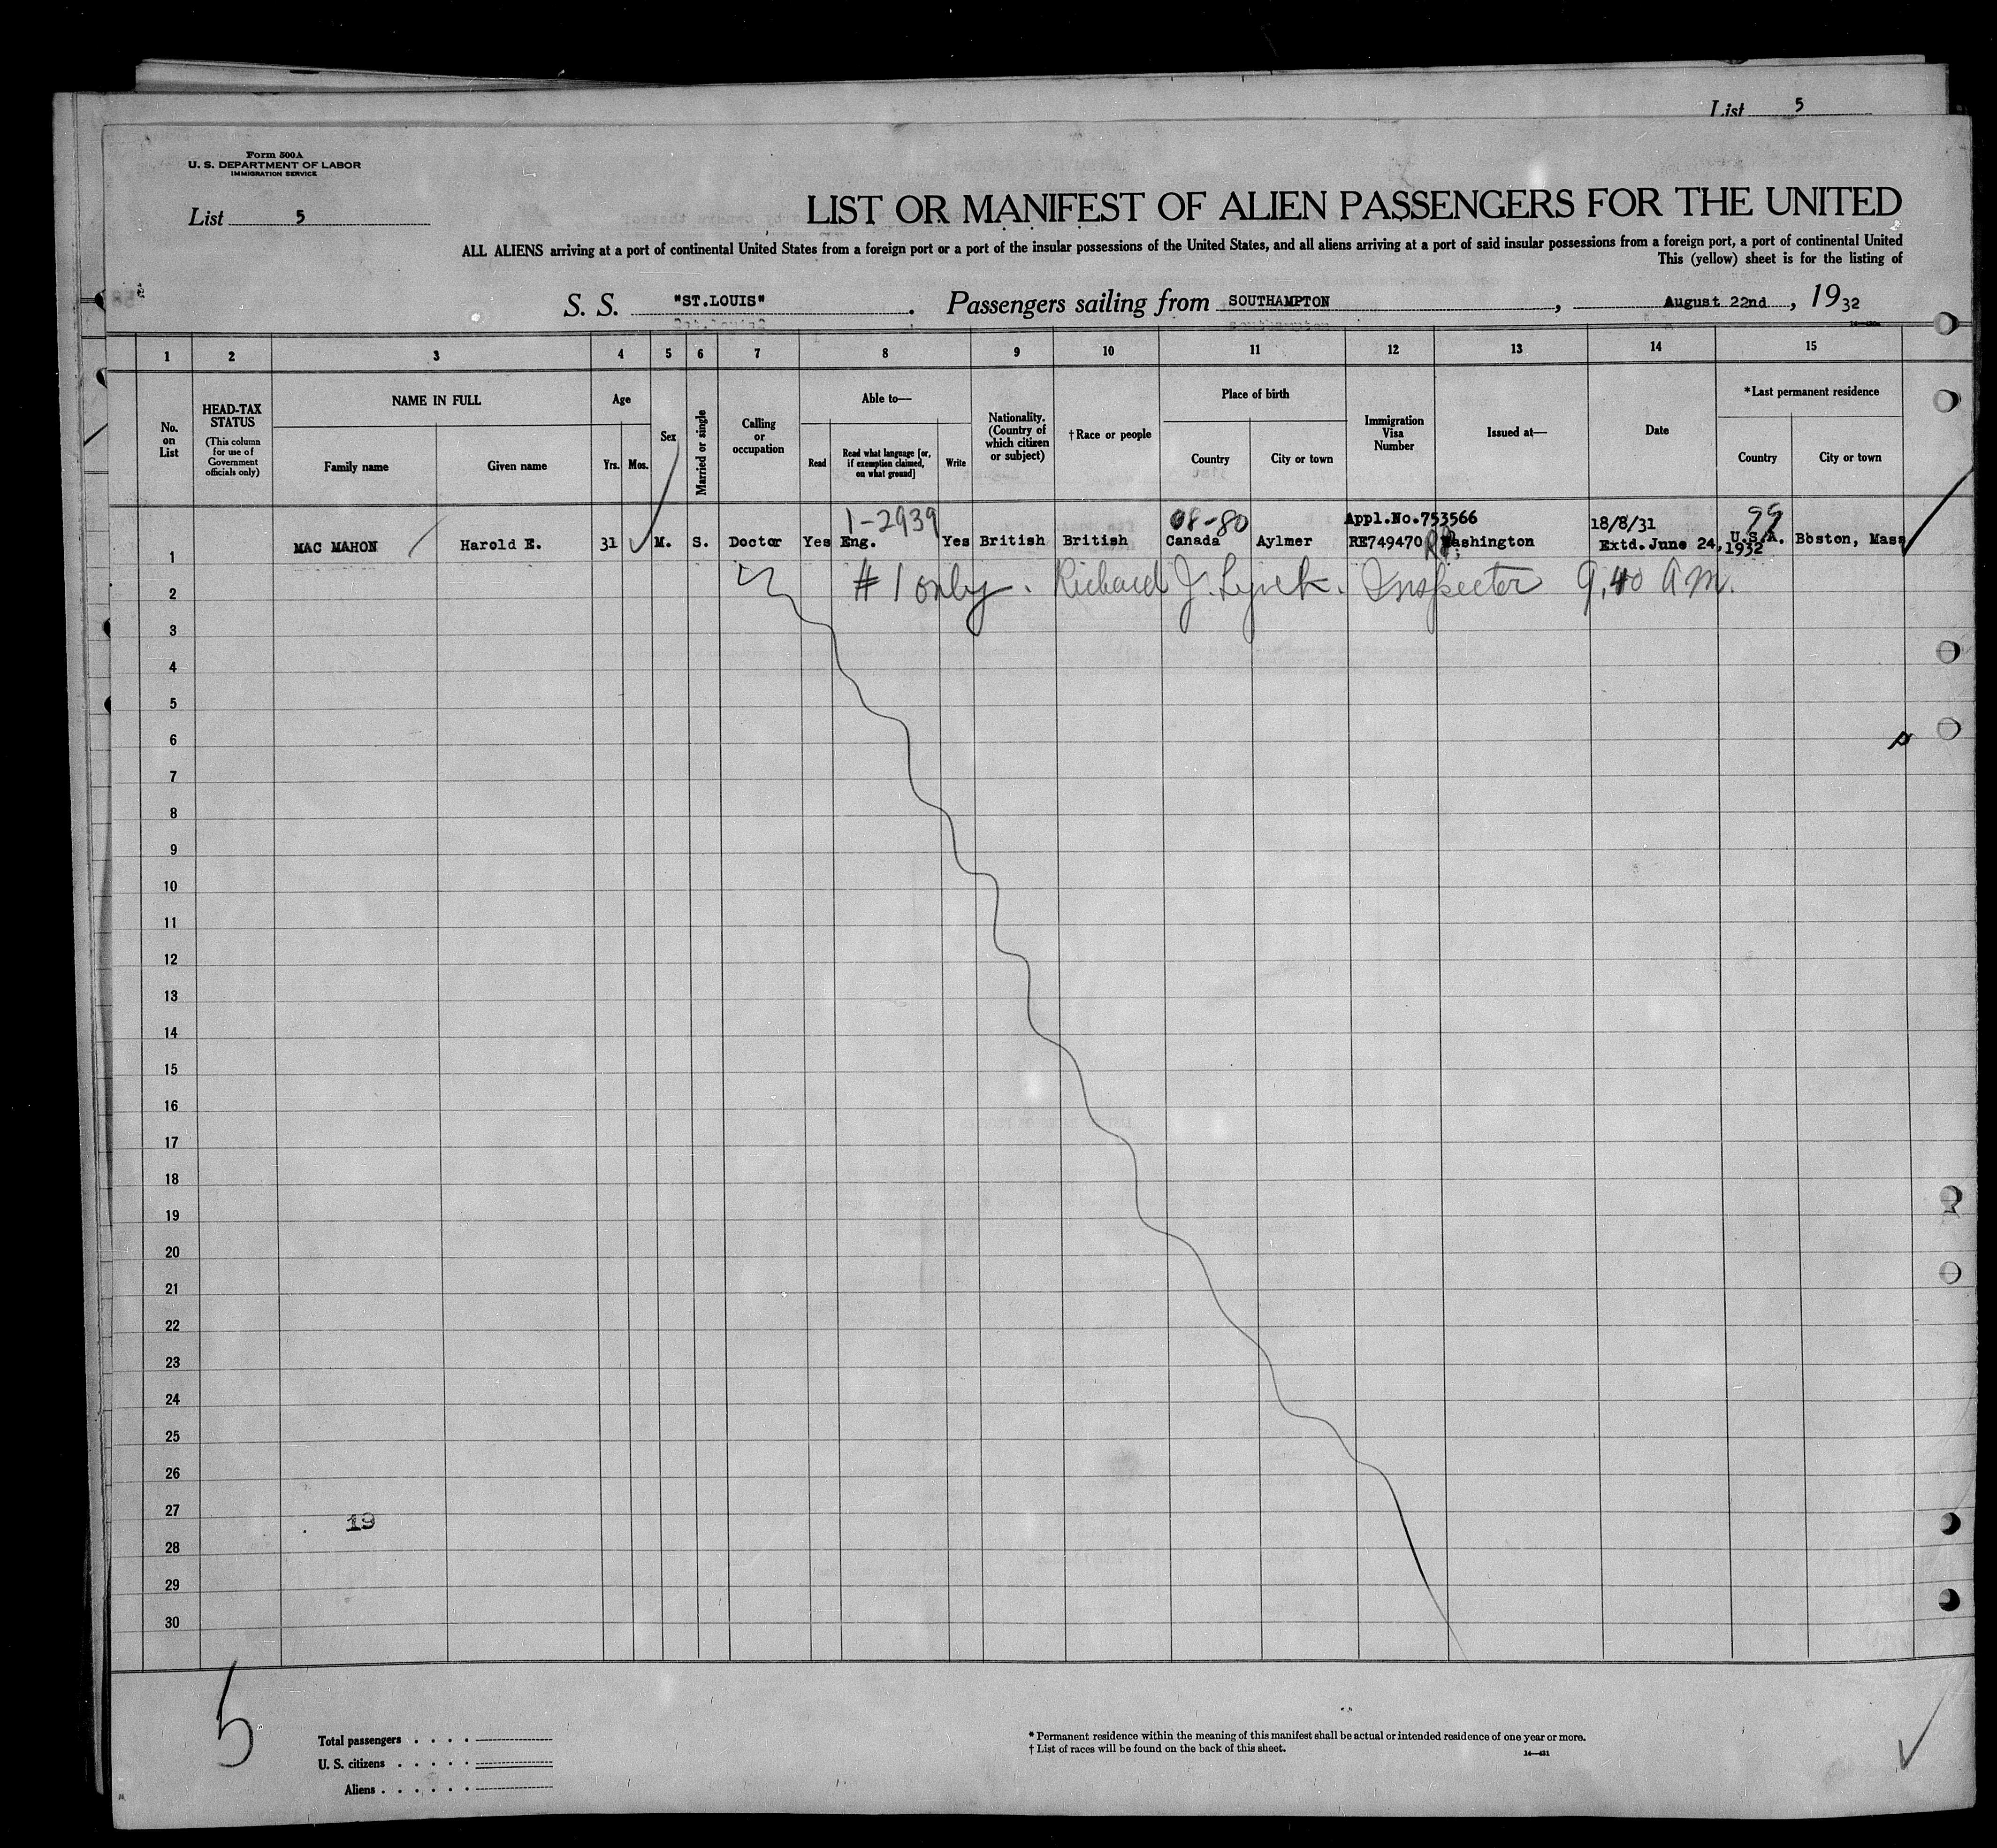 List 5
Form 500A
U. S. DEPARTMENT OF LABOR
IMMIGRATION SERVICE
List 5
LIST OR MANIFEST OF ALIEN PASSENGERS FOR THE UNITED
ALL ALIENS arriving at a port of continental United States from a foreign port or a port of the insular possessions of the United States, and all aliens arriving at a port of said insular possessions from a foreign port, a port of continental United
This (yellow) sheet is for the listing of
S. S. "ST.LOUIS" . Passengers sailing from SOUTHAMPTON , August 22nd , 1932
1 2 3 4 5 6 7 8 9 10 11 12 13 14 15
No. on List
HEAD-TAX STATUS
(This column for use of Government officials only)
NAME IN FULL
Family name Given name
Age
Yrs. Mos.
Sex
Married or single
Calling or occupation
Able to—
Read
Read what language [or, if exemption claimed, on what ground]
Write
Nationality. (Country of which citizen or subject)
†Race or people
Place of birth
Country City or town
Immigration Visa Number
Issued at—
Date
*Last permanent residence
Country City or town
1-2939 08-80 Appl.No.753566 18/8/31 99
1 MAC MAHON Harold E. 31 M. S. Doctor Yes Eng. Yes British British Canada Aylmer RE749470 Washington Extd.June 24,1932 U.S.A. Bbston, Mass
2 #1 only. Richard J. Lynch. Inspector 9,40 AM.
3
4
5
6
7
8
9
10
11
12
13
14
15
16
17
18
19
20
21
22
23
24
25
26
27
19
28
29
30
5
Total passengers . . . .
U. S. citizens . . . . .
Aliens . . . . . .
* Permanent residence within the meaning of this manifest shall be actual or intended residence of one year or more.
† List of races will be found on the back of this sheet.
14—431